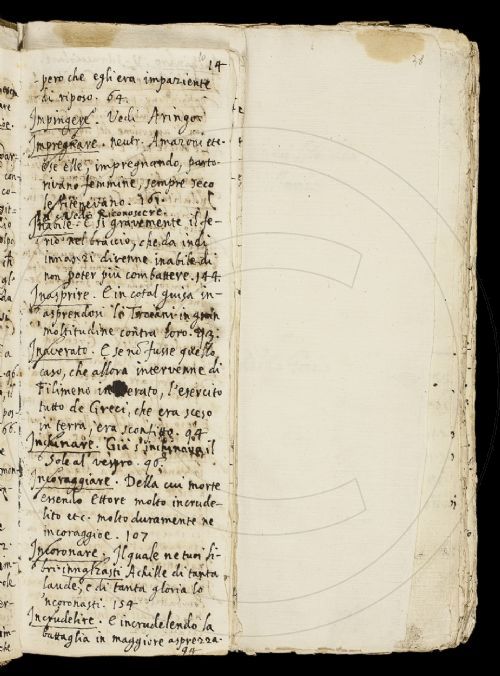 14
però che egli era impaziente
di riposo. 64.
Impingere. Vedi Aringo.
Impregnare. neutr. Amazoni etc.
se elle, impregnando, parto
rivano femmine, sempre seco
le ritenevano. 161.
Vedi Riconoscere.
Inabile. E sì gravemente il fe-
rio nel braccio, che da indi
innanzi divenne inabile di
non poter più combattere. 144.
Inasprire. E in cotal guisa in-
asprendosi li Troiani in gran
moltitudine contra loro. 113.
Inaverato. E se nõ fusse quello
caso, che allora intervenne di
Filimeno in erato, l'esercito
tutto de Greci, che era sceso
in terra, era sconfitto. 94
Inchinare. Già s'inchinava il
Sole al vespro. 96.
Incoraggiare. Della cui morte
essendo Ettore molto incrude-
lito etc. molto duramente ne
incoraggioe. 107
Incoronare. Il quale ne tuoi li-
bri innalzasti Achille di tanta
laude, e di tanta gloria lo
'ncoronasti. 154
Incrudelire. E incrudelendo la
battaglia in maggiore asprezza.
94
28